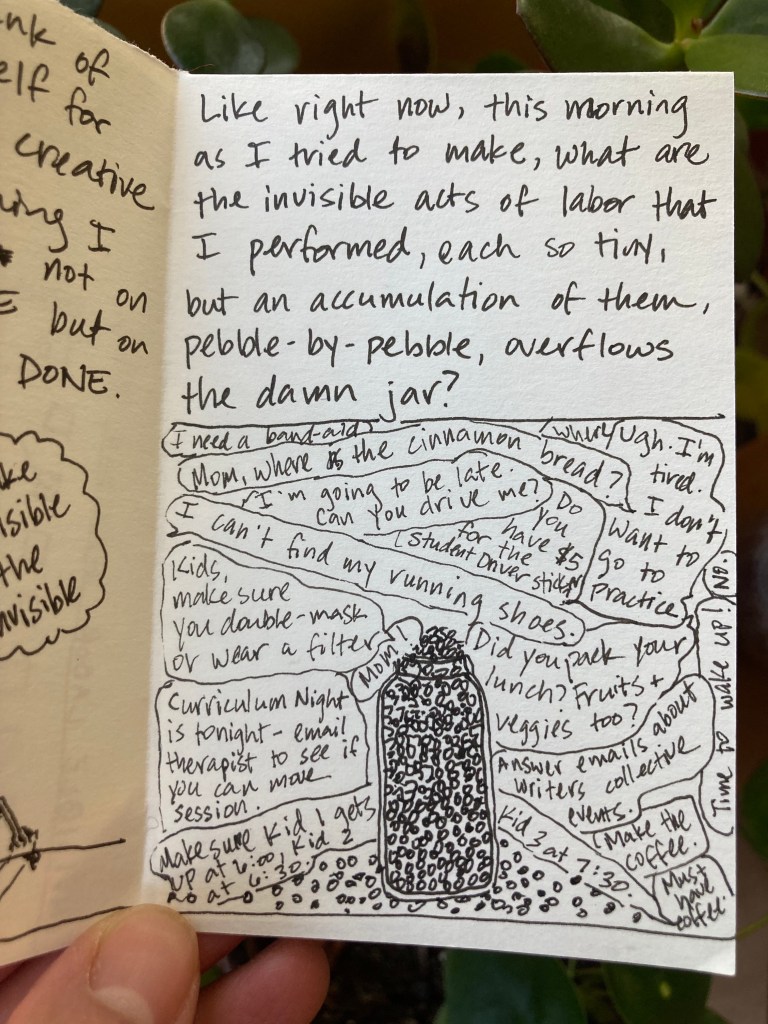 nk of
elf for
creative
ing I
not on
E but on
DONE.
ke
isible
the
nvisible
Like right now, this morning
as I tried to make, what are
the invisible acts of labor that
I performed, each so tiny,
but an accumulation of them,
pebble-by-pebble, overflows
the damn jar?
I need a band-aid
Mom, where is the cinnamon bread?
Ugh. I'm
tired.
I don't
want to
go to
practice
I'm going to be late.
Can you drive me?
Do
you
have $5
for the
Student Driver sticker
I can't find my running shoes.
Kids,
make sure
you double-mask
or wear a filter
Mom!
Did you pack your
lunch? Fruits +
veggies too?
Time to wake up!
NO!
Curriculum Night
is tonight - email
therapist to see if
you can move
session.
Answer emails about
writers collective
events.
Make sure Kid 1 gets
up at 6:00, Kid 2
at 6:30,
Kid 3 at 7:30.
Make the
coffee.
Must
have
coffee.